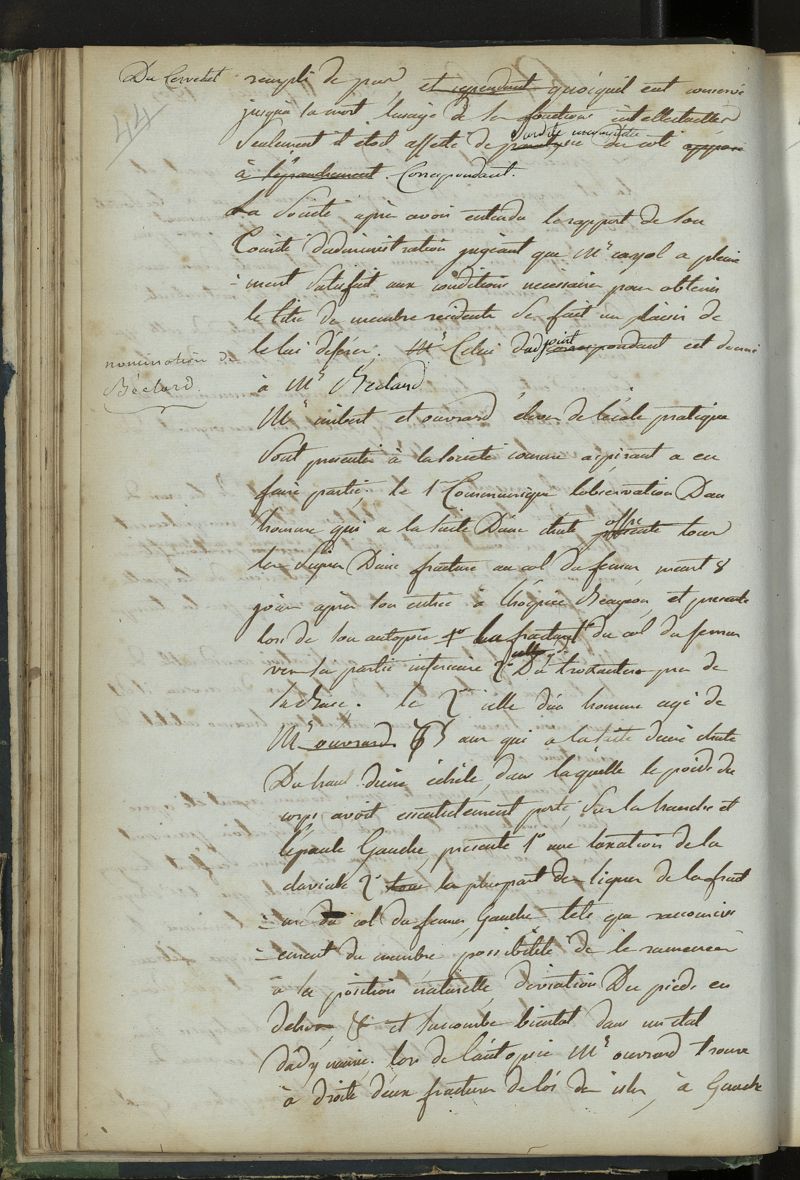 Du Cervelet
44
rempli de pus, et cependant quoiquil eut conservé
jusqu'a sa mort l'usage de ses fonctions intellectuelles
seulement il etoit affecté de paralysie surdité du coté opposé
à l'épanchement. Correspondant.
La Société après avoir entendu le rapport de son
Comité d'administration jugeant que Mr cayol a pleine
-ment satisfait aux conditions necessaires pour obtenir
le titre de membre residente se fait un plaisir de
le lui déférer. Mr Celui d'adjoint correspondant est donné
nomination de
Béclard.
à Mr Béclard
Mrs imbert et ouvrard éleves de l'école pratique
sont presentés à la société comme aspirant a en
faire partie. le 1r Communique l'observation D'un
homme qui a la suite D'une chute offre presente tous
les signes D'une fracture au col du femur, meurt 8
jours après son entrée à l'hospice Beaujon, et presente
lors de son autopsie 1o une fracture du col du femur
vers sa partie inferieure 2o celle Du trochanter pres de
sa base. le 2e celle d'un homme agé de
Mr ouvrard 65 ans qui a la suite d'une chute
Du haut d'une échelle, dans laquelle le poids du
corps avoit essentiellement porté sur la hanche et
l'épaule Gauche, presente 1o une luxation de la
clavicule 2o tous la pluspart des signes de la fract
-ure du col du femur Gauche tels que raccourciss
-ement du membre possibilité de le ramener
à sa position naturelle, deviation Du pied en
dehors, & et succombe bientot dans un etat
d'adynamie. lors de l'autopsie Mr ouvrard trouve
à droite deux fractures de l'os des iles, à Gauche